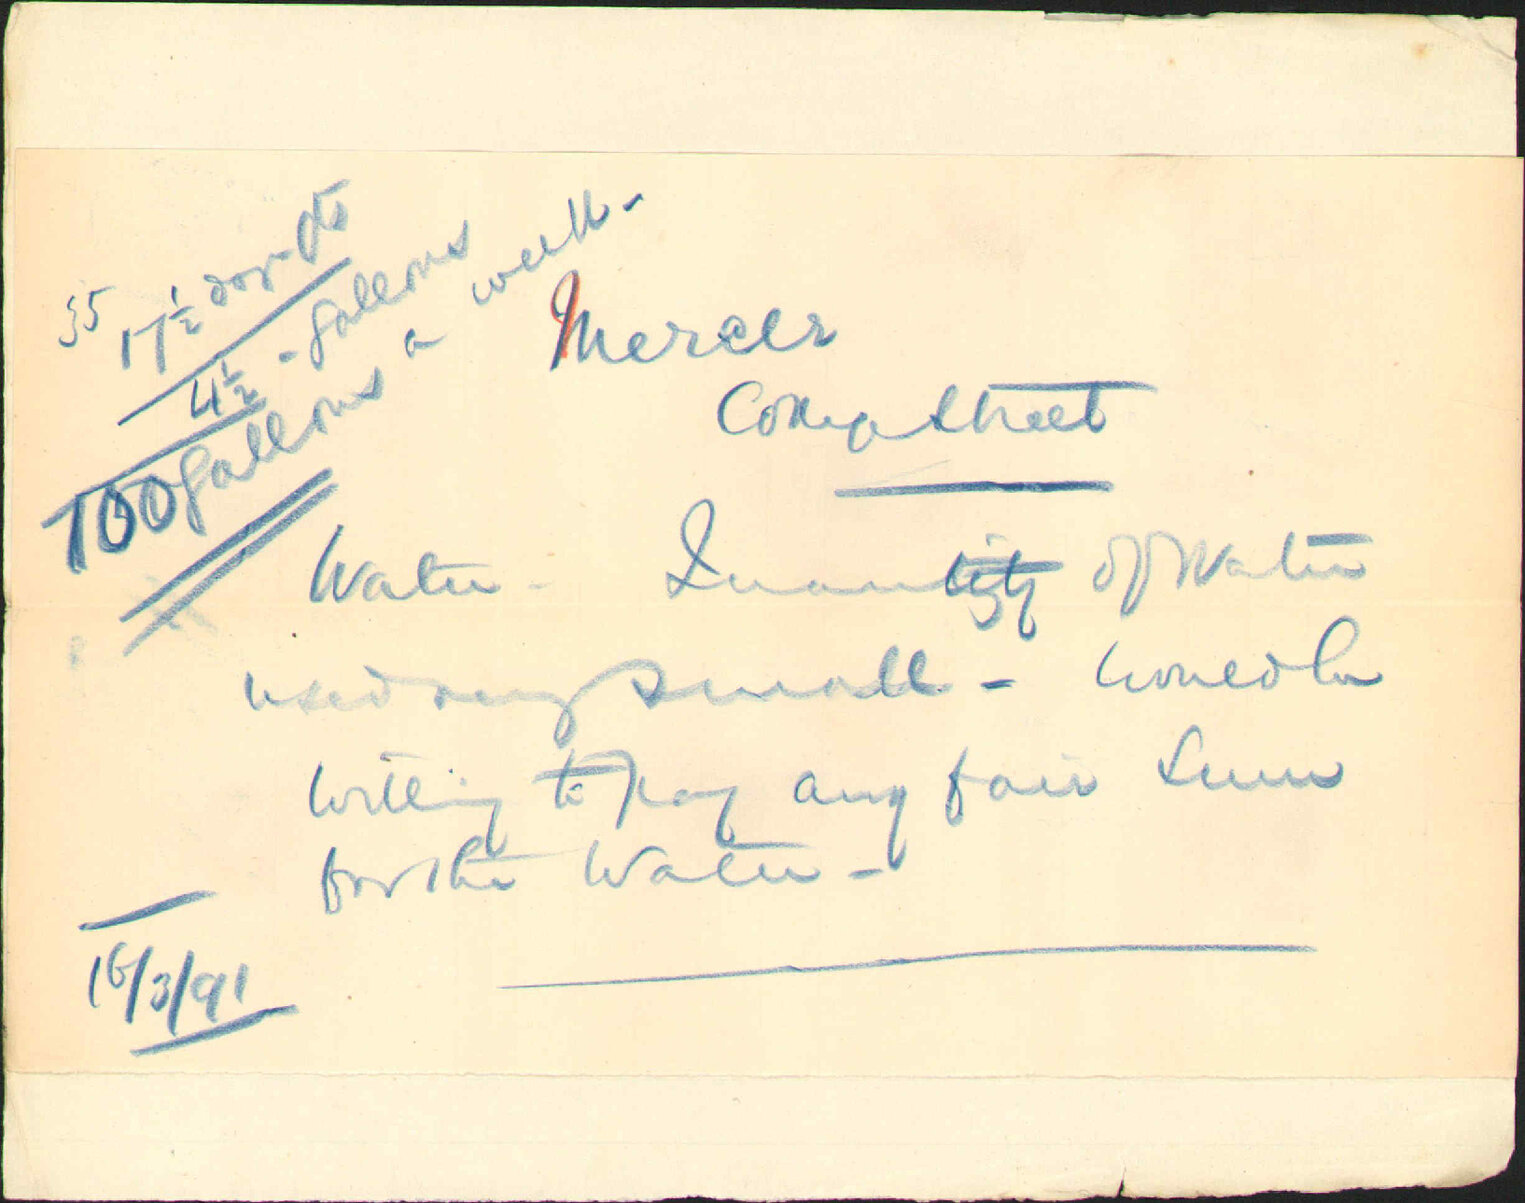 35 17½ doz qts
4½ - gallons
100 gallons a week -
Mercer
College Street
Water - Quantity of Water
used very small - would be
willing to pay any fair sum
for the Water -
16/3/91